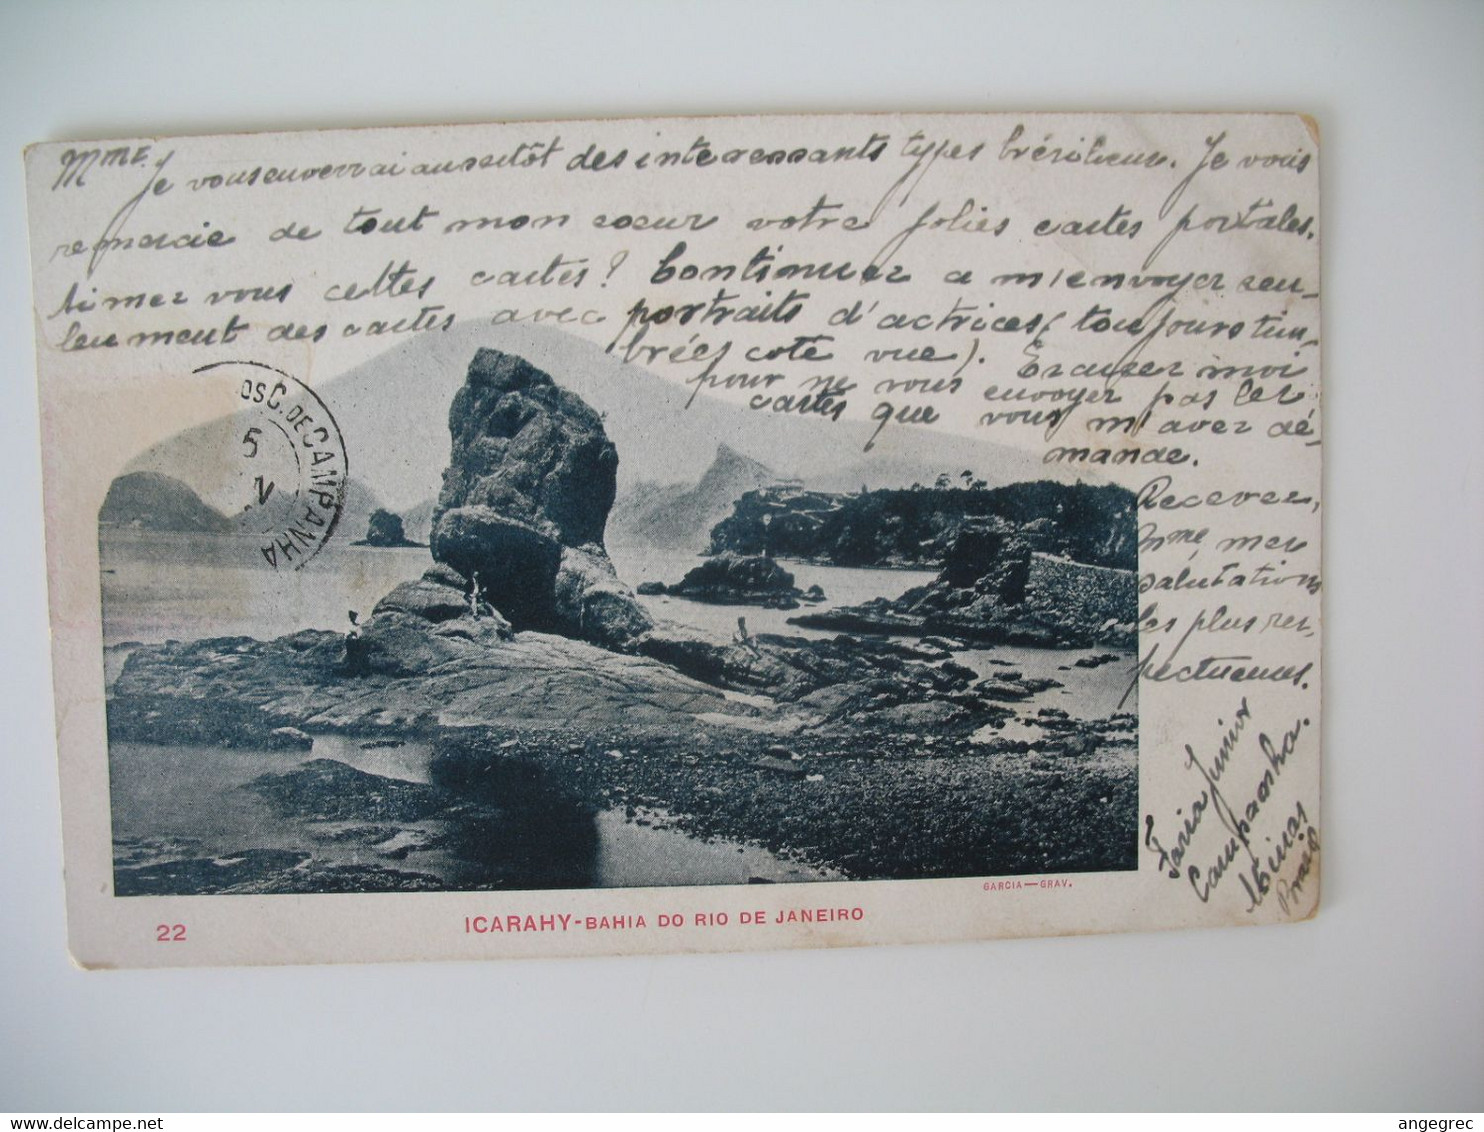 Mme. Je vous enverrai aussitôt des interessants types brésilieus. Je vous
remercie de tout mon coeur votre jolies cartes portales.
Aimez vous cettes cartes? Continuez a m'envoyer seu-
leument des cartes avec portraits d'actrices (toujours tim-
brées coté vue). Excusez moi
pour ne vous envoyer pas les
cartes que vous m'avez dé-
mandé.
Recevez,
Mme, mes
salutations
les plus res-
pectueuses.
Faria Junior
Campanha.
Minas
Brasil
OSC. DE CAMPANHA
5
GARCIA—GRAV.
22
ICARAHY-BAHIA DO RIO DE JANEIRO
www.delcampe.net
angegrec